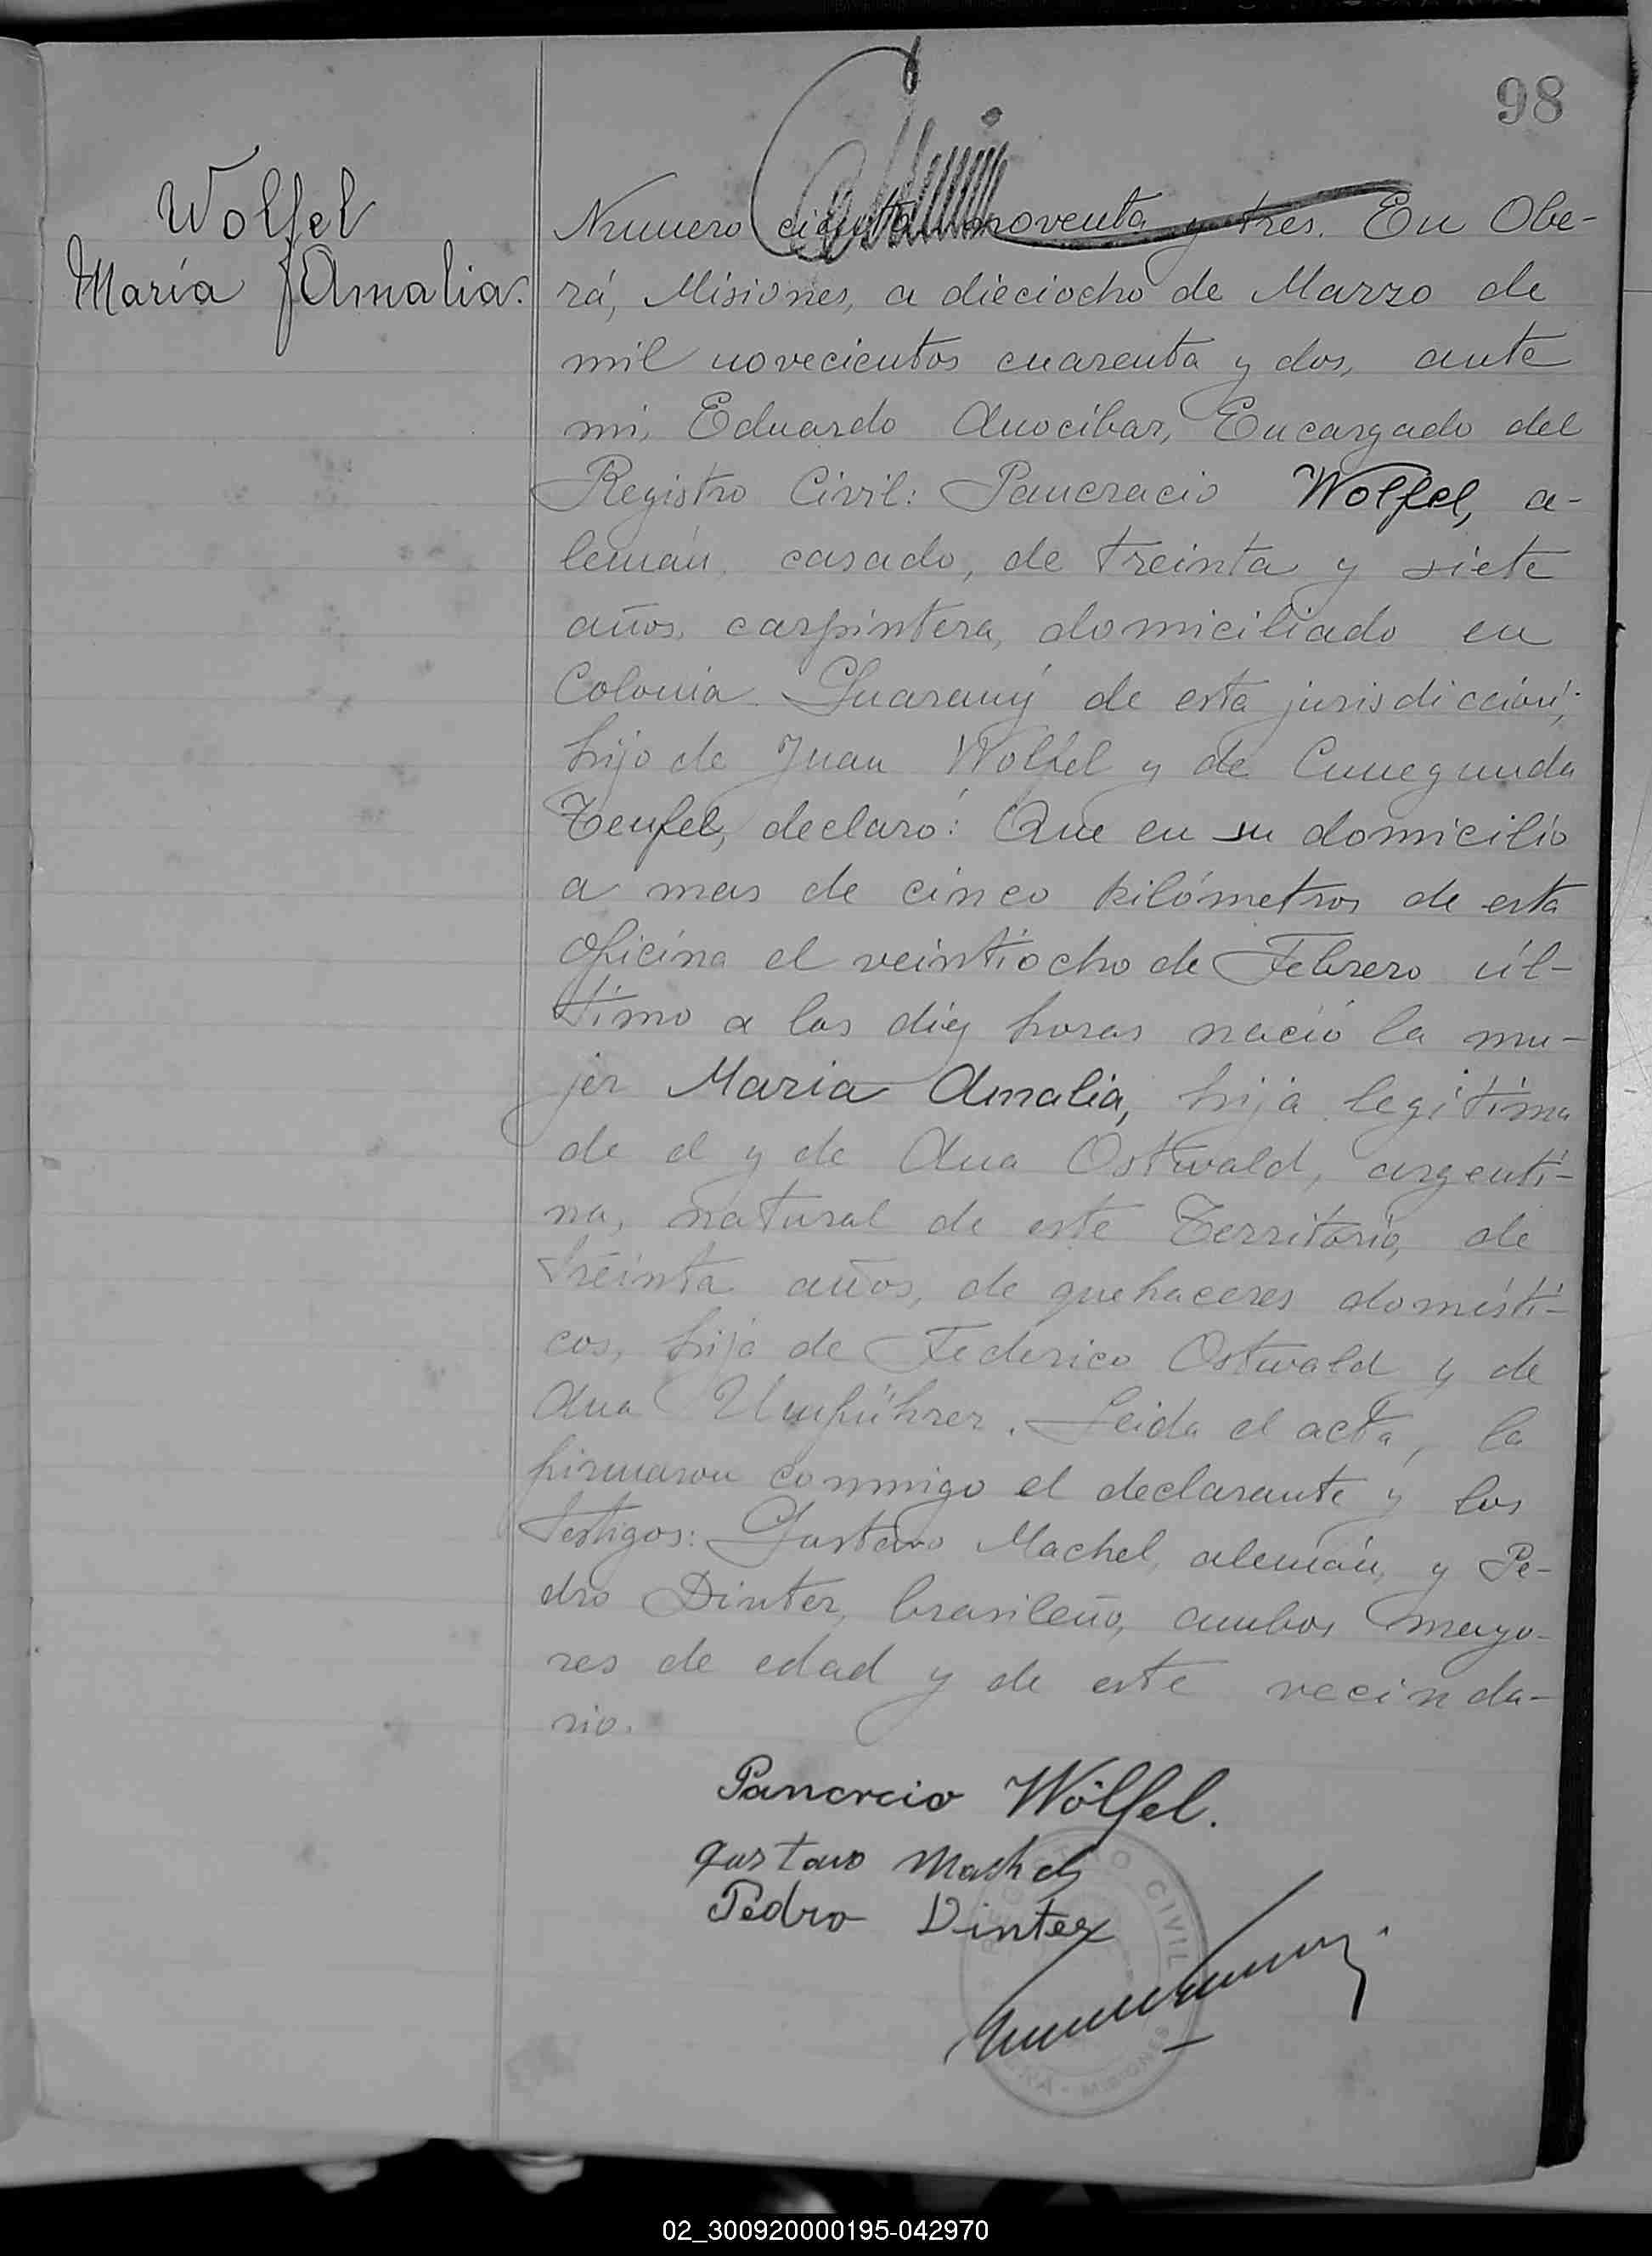 98
Wolfel
María Amalia.
Numero ciento noventa y tres. En Obe-
rá, Misiones, a dieciocho de Marzo de
mil novecientos cuarenta y dos, ante
mi, Eduardo Anocibar, Encargado del
Registro Civil: Pancracio Wolfel, a-
lemán, casado, de treinta y siete
años, carpintero, domiciliado en
Colonia Guarany de esta jurisdicción,
hijo de Juan Wolfel y de Cunegunda
Teufel, declaró: Que en su domicilio
a mas de cinco kilómetros de esta
oficina el veintiocho de Febrero úl-
timo a las diez horas nació la mu-
jer Maria Amalia, hija legítima
de el y de Ana Ostwald, argenti-
na, natural de este Territorio, de
treinta años, de quehaceres domésti-
cos, hija de Federico Ostwald y de
Ana Umführer. Leida el acta, la
firmaron conmigo el declarante y los
testigos: Gustavo Machel, alemán, y Pe-
dro Dinter, brasileño, ambos mayo-
res de edad y de este vecinda-
rio.
Pancrcio Wölfel.
gustavo Machel
Pedro Dinter
CIVIL
MISIONES
02_300920000195-042970